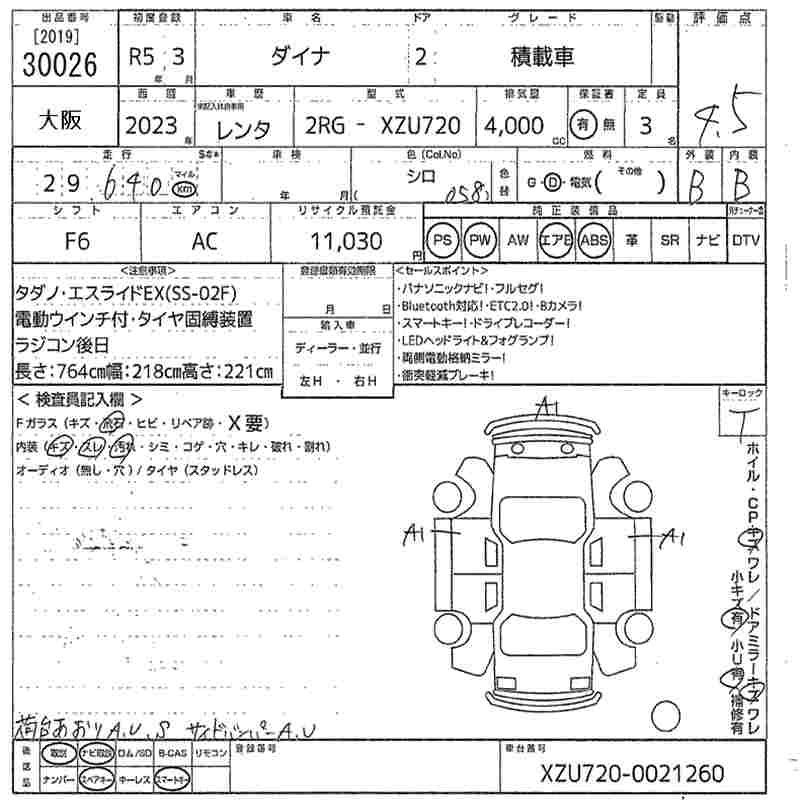 出品番号 初度登録 車名 ドア グレード 駆動 評価点
[2019]
30026 R5 3 年 月 ダイナ 2 積載車 4.5
大阪 西暦 車歴 型式 排気量 保証書 定員
2023 年 レンタ 2RG - XZU720 4,000 CC 有 無 3 名
走行 車検 色(Col.No) 燃料 外装 内装
29,640 マイル km 年 月 シロ 058 色替 G・D・電気( その他 ) B B
シフト エアコン リサイクル預託金 純正装備品
F6 AC 11,030 円 PS PW AW エアB ABS 革 SR ナビ DTV
<注意事項> 登録書類有効期限 <セールスポイント>
タダノ・エスライドEX(SS-02F)
電動ウインチ付・タイヤ固縛装置
ラジコン後日
長さ:764cm幅:218cm高さ:221cm
月 日
輸入車
ディーラー・並行
左H ・ 右H
・パナソニックナビ!・フルセグ!
・Bluetooth対応!・ETC2.0!・Bカメラ!
・スマートキー!・ドライブレコーダー!
・LEDヘッドライト&フォグランプ!
・両側電動格納ミラー!
・衝突軽減ブレーキ!
< 検査員記入欄 > キーロック
Fガラス(キズ・飛石・ヒビ・リペア跡・X要) T
内装(キズ・スレ・汚れ・シミ・コゲ・穴・キレ・破れ・割れ)
オーディオ(無し・穴)/タイヤ(スタッドレス)
A1
A1 A1
ホイル・CPキズワレ/ドアミラーキズワレ
小キズ有/小U有/補修有
荷台あおりA.U.S サイドバンパーA.U
後送品 取説 ナビ取説 ロム/SD B-CAS リモコン 登録番号 車台番号
ナンバー スペアキー キーレス スマートキー XZU720-0021260